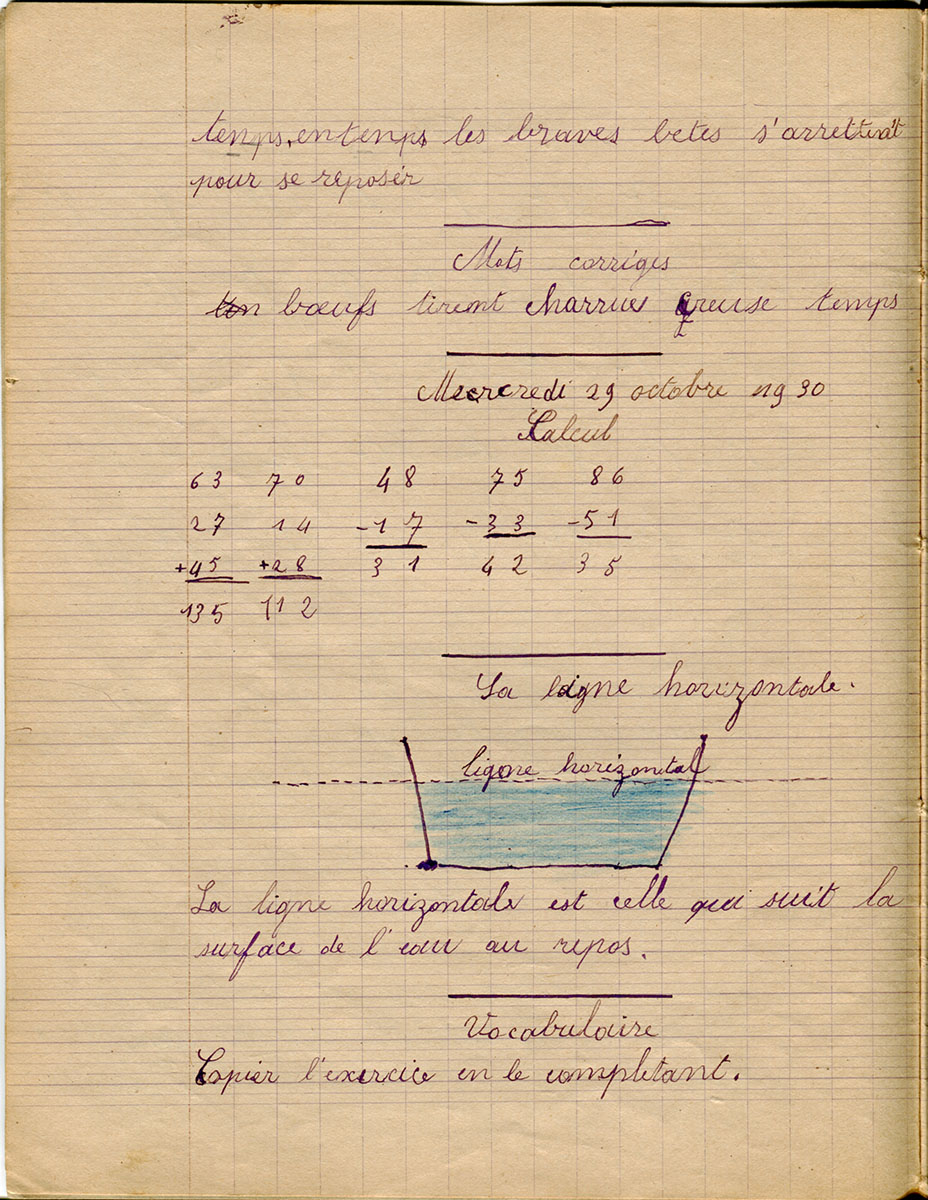 temps en temps les braves betes s'arrettent
pour se reposér
Mots corriges
bœufs tirent charrue creuse temps
Mercredi 29 octobre 1930
Calcul
63 70 48 75 86
27 14 -17 -33 -51
+45 +28 31 42 35
135 112
La ligne horizontale.
ligne horizontal
La ligne horizontale est celle qui suit la
surface de l'eau au repos.
Vocabulaire
Copier l'exercice en le completant.